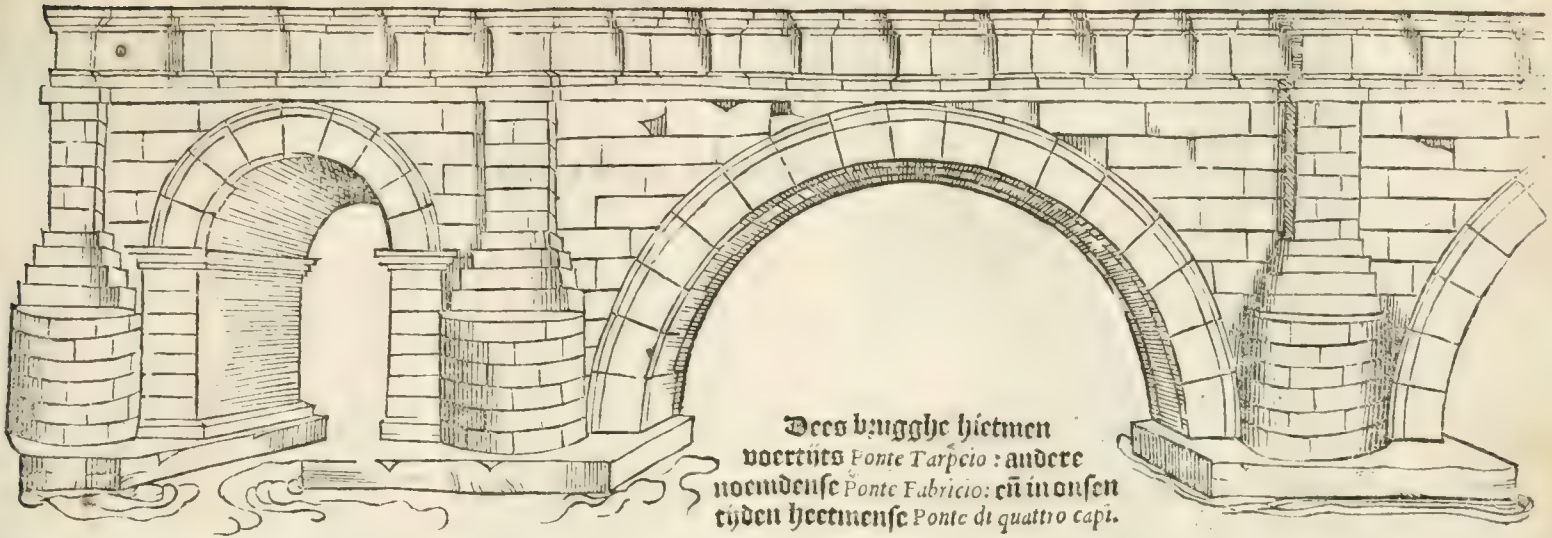 Dees brugghe hietmen
voertijts Ponte Tarpeio : andere
noemdense Ponte Fabricio: eñ in onsen
tijden heetmense Ponte di quattro capi.